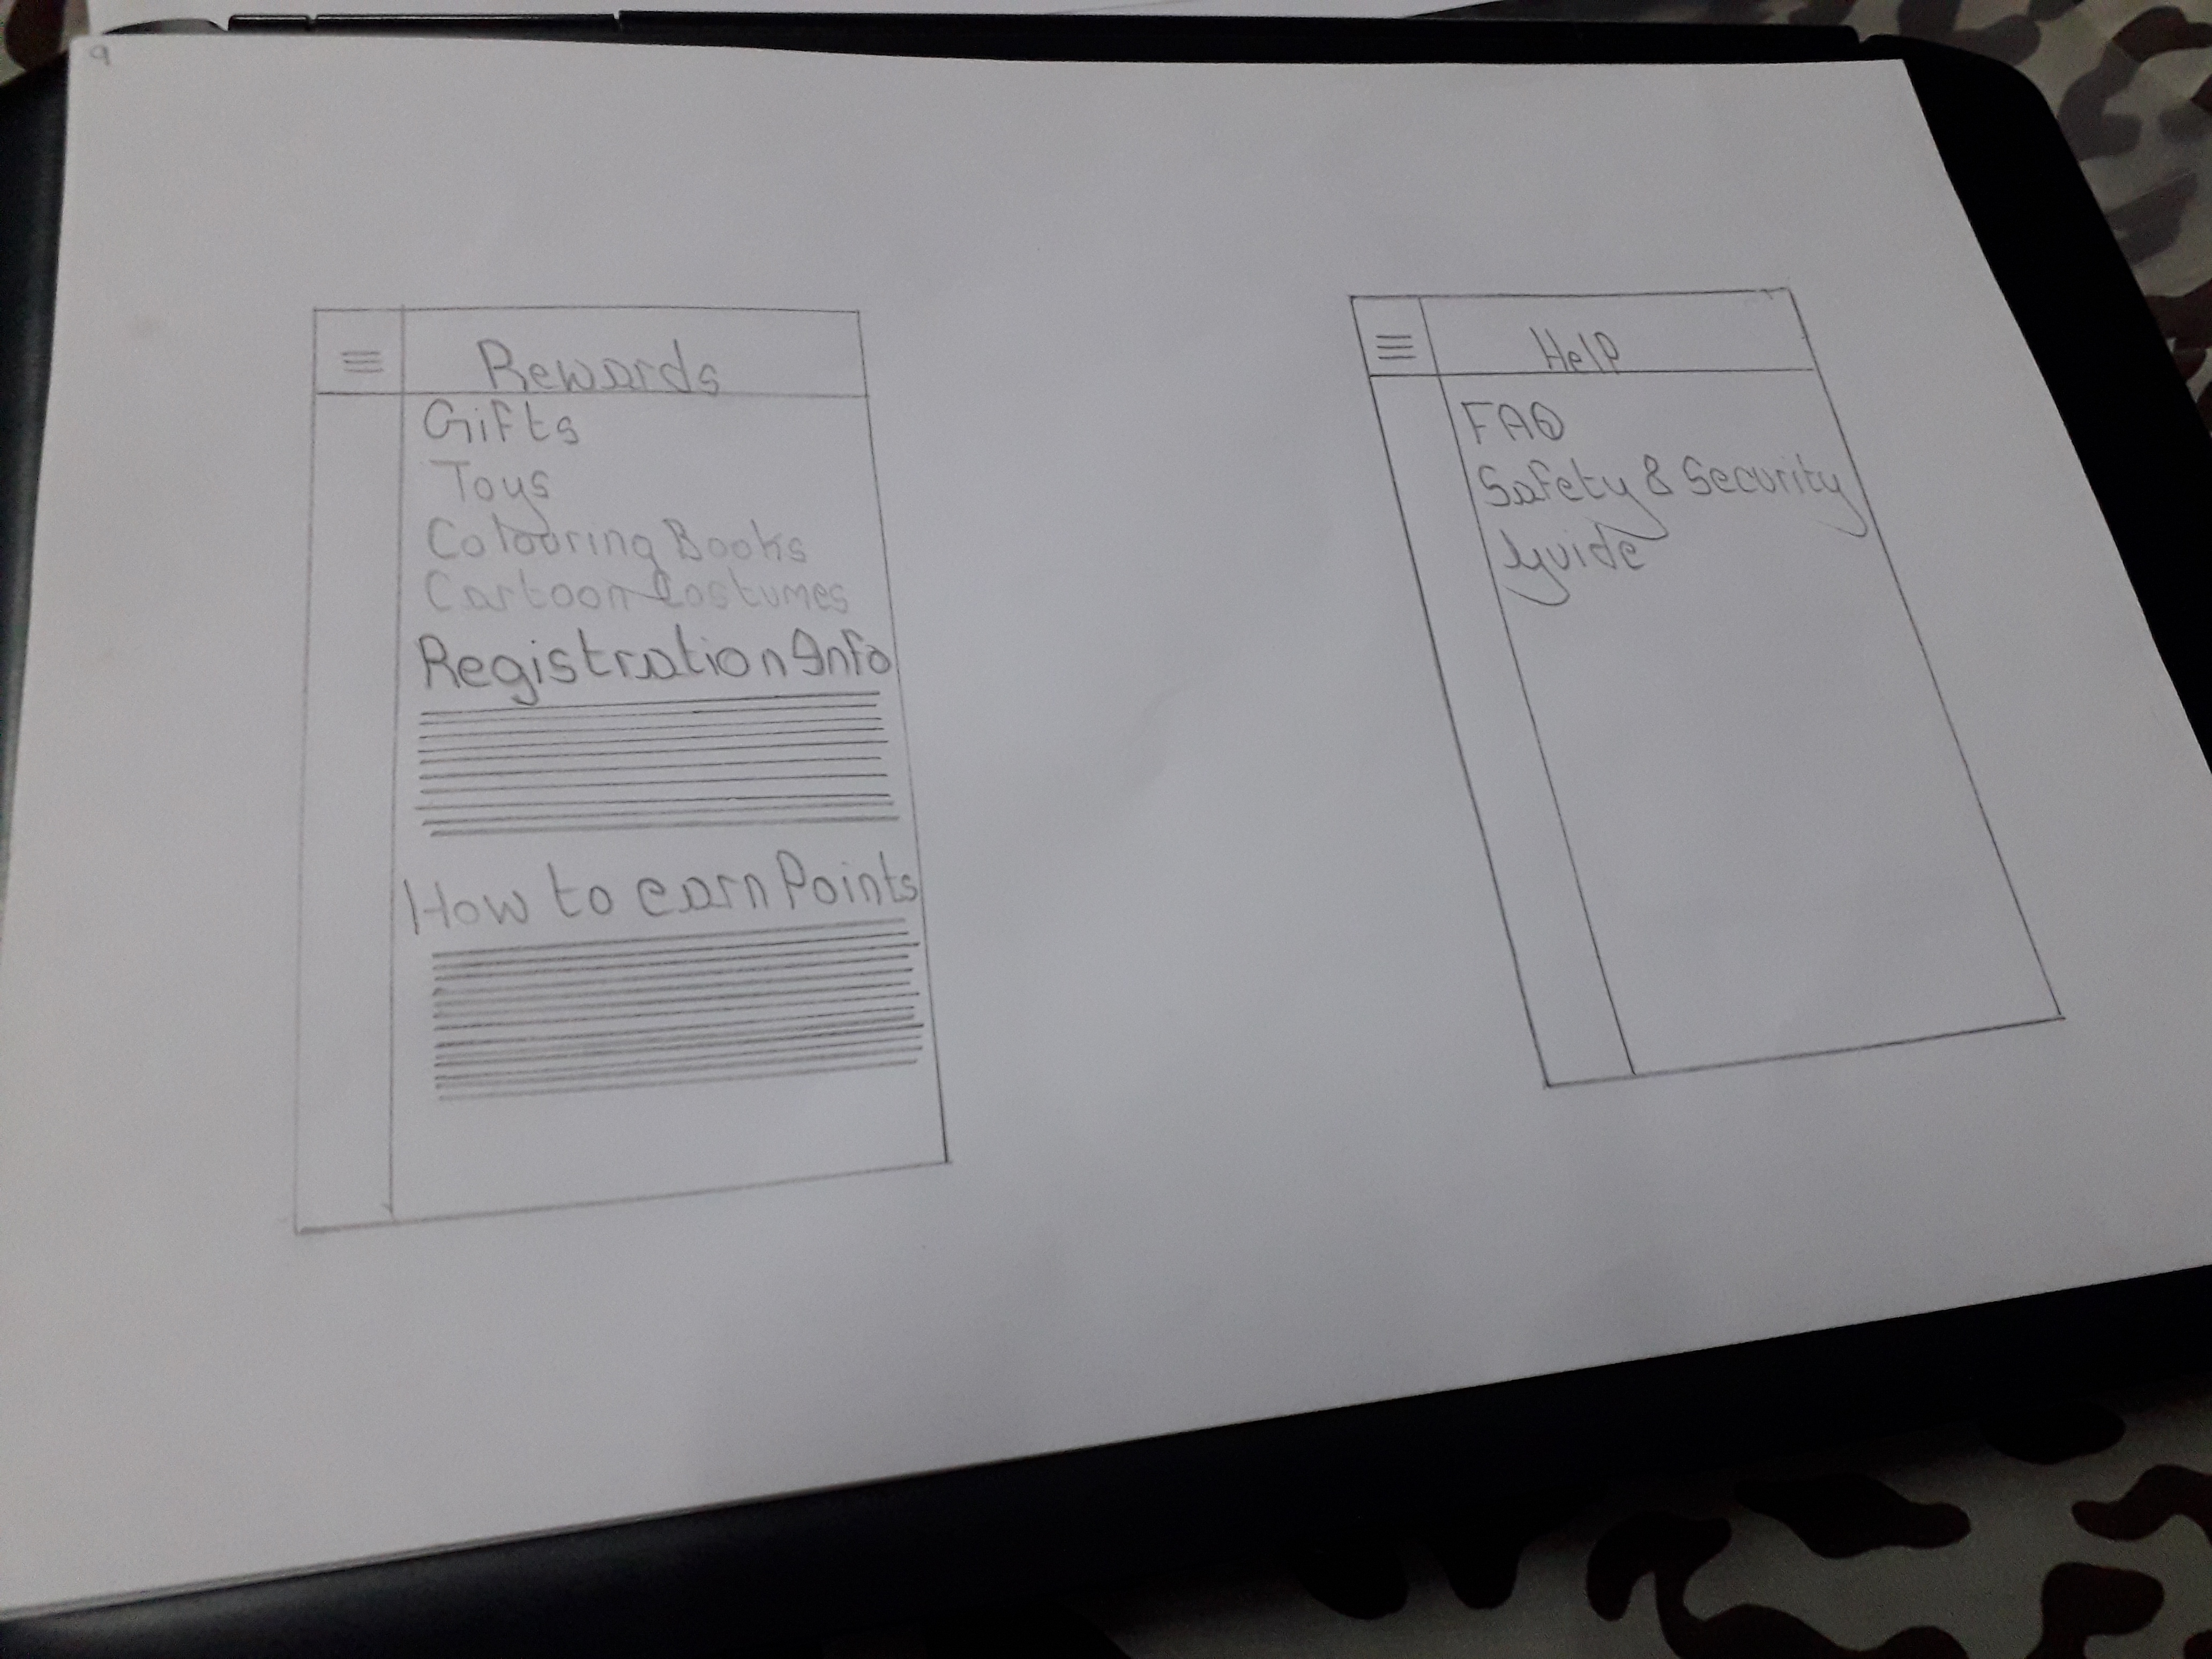 9
Rewards
Gifts
Toys
Colouring Books
Cartoon Costumes
Registration Info
How to earn Points
Help
FAQ
Safety & Security
Guide